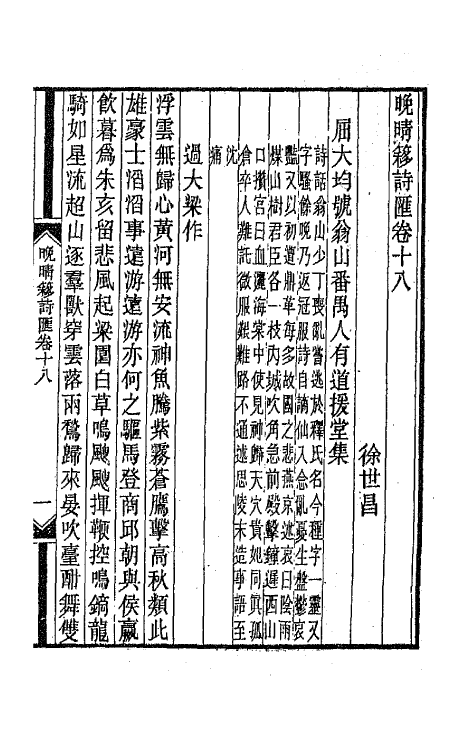 晚晴簃詩匯卷十八
徐世昌
屈大均號翁山番禺人有道援堂集
詩話翁山少丁喪亂嘗逃於釋氏名今種字一靈又
字騷餘晚乃返冠服詩自謫仙入念亂憂生盤鬱哀
豔又以初遭鼎革每多故國之悲燕京述哀曰陰雨
煤山樹君臣各一枝內城吹角急前殿擊鐘遲西山
口攢宮曰血灑海棠中使見神歸天穴貴妃同眞孤
倉卒人難託微服艱難路不通述思陵末造事語至
沈
痛
過大梁作
浮雲無歸心黃河無安流神魚騰紫霧蒼鷹擊高秋類此
雄豪士滔滔事遠游遠游亦何之驅馬登商邱朝與侯嬴
飲暮爲朱亥留悲風起梁園白草鳴颼颼揮鞭控鳴鏑龍
騎如星流超山逐羣獸穿雲落兩鶖歸來宴吹臺酣舞雙
晚晴簃詩匯卷十八
一